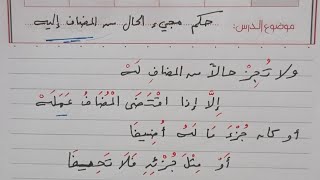 موضوع الدرس: حكم مجيء الحال من المضاف إليه
ولا تُجِزْ حالاً من المضافِ لَهْ
إِلَّا إذا اقْتَضَى المُضَافُ عَمَلَهْ
أو كان جُزْءَ مَا لَهُ أُضِيفَا
أَوْ مِثْلَ جُزْئِهِ فَلَا تَحِيفَا